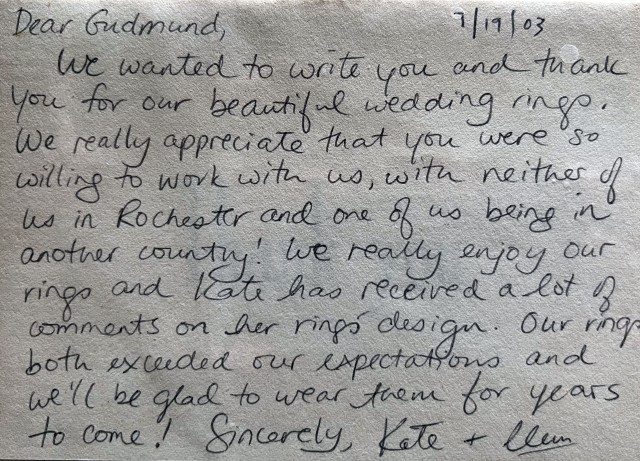 Dear Gudmund, 7/19/03
We wanted to write you and thank
you for our beautiful wedding rings.
We really appreciate that you were so
willing to work with us, with neither of
us in Rochester and one of us being in
another country! We really enjoy our
rings and Kate has received a lot of
comments on her rings' design. Our rings
both exceeded our expectations and
we'll be glad to wear them for years
to come! Sincerely, Kate +